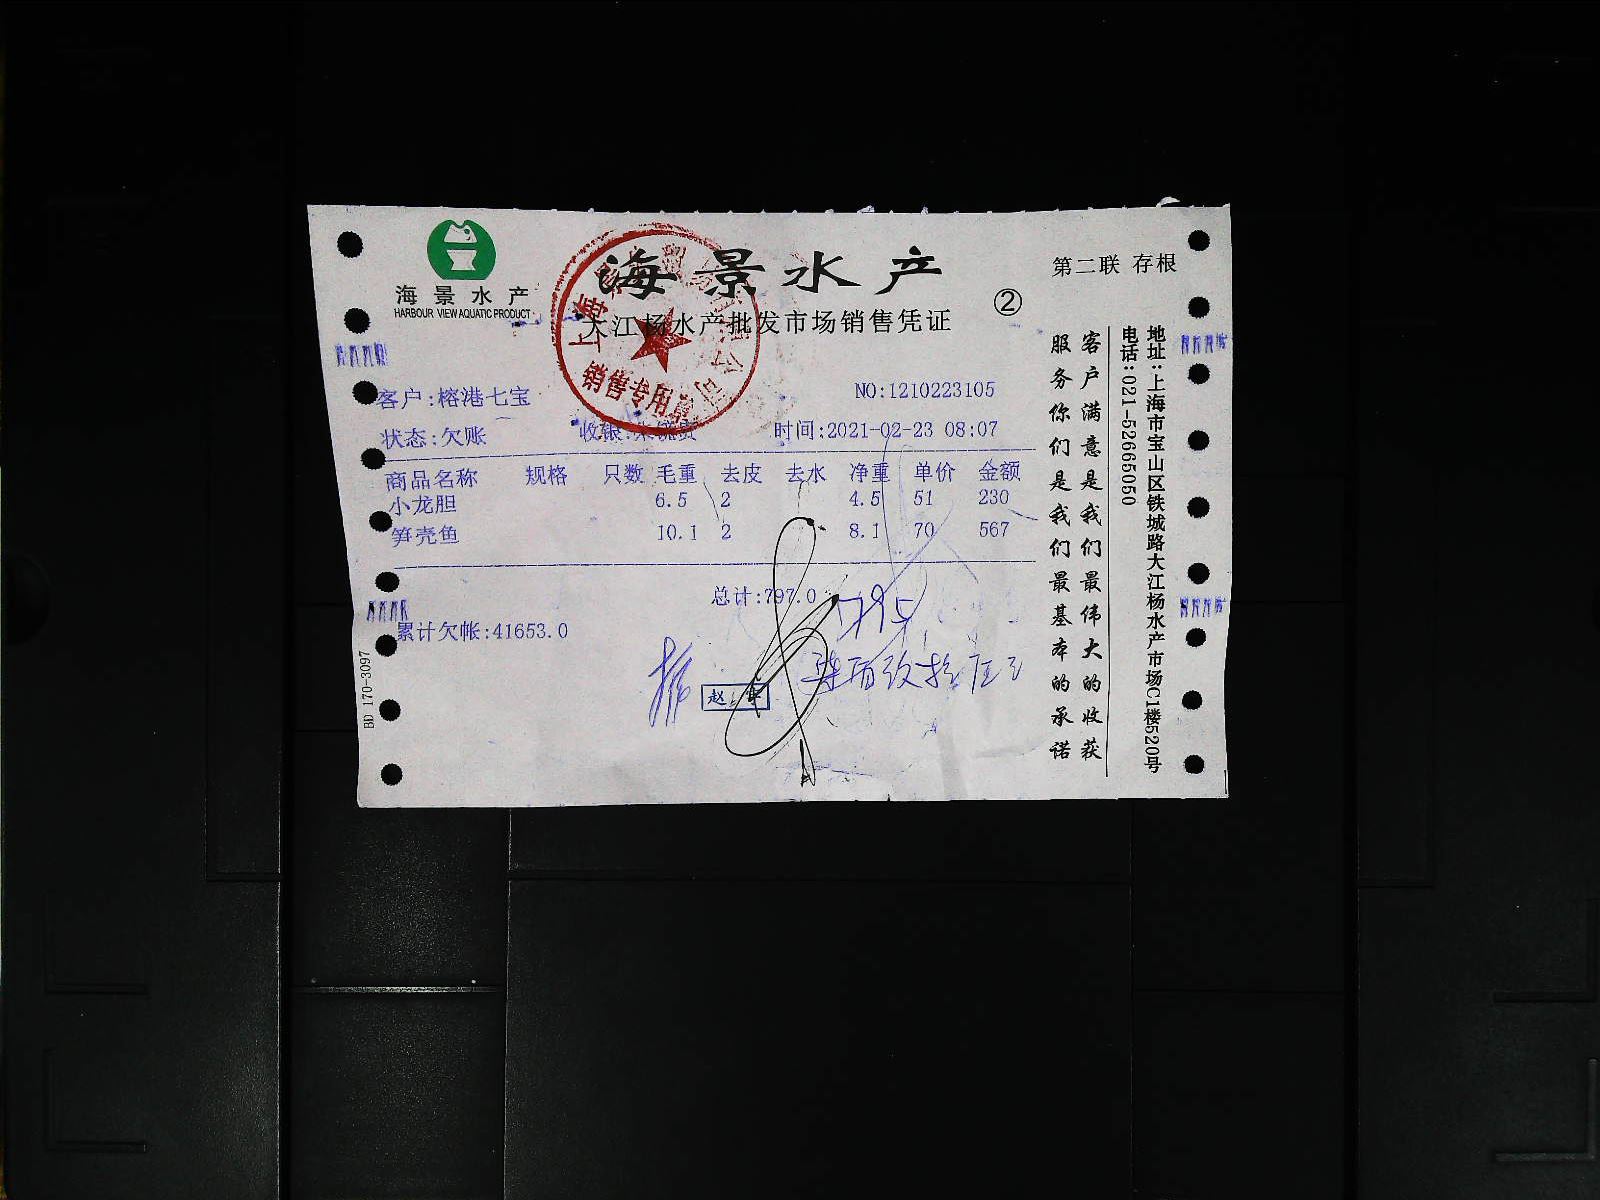 海景水产
HARBOUR VIEW AQUATIC PRODUCT
海景水产
大江杨水产批发市场销售凭证
②
第二联 存根
上海
公司
销售专用章
客户:榕港七宝
NO:1210223105
状态:欠账
收银:
时间:2021-02-23 08:07
商品名称 规格 只数 毛重 去皮 去水 净重 单价 金额
小龙胆 6.5 2 4.5 51 230
笋壳鱼 10.1 2 8.1 70 567
总计:797.0
795
累计欠帐:41653.0
赵
柒百玖拾伍
BD 170-3097
客户满意是我们最伟大的收获
服务你们是我们最基本的承诺
地址:上海市宝山区铁城路大江杨水产市场C1楼520号
电话:021-52665050